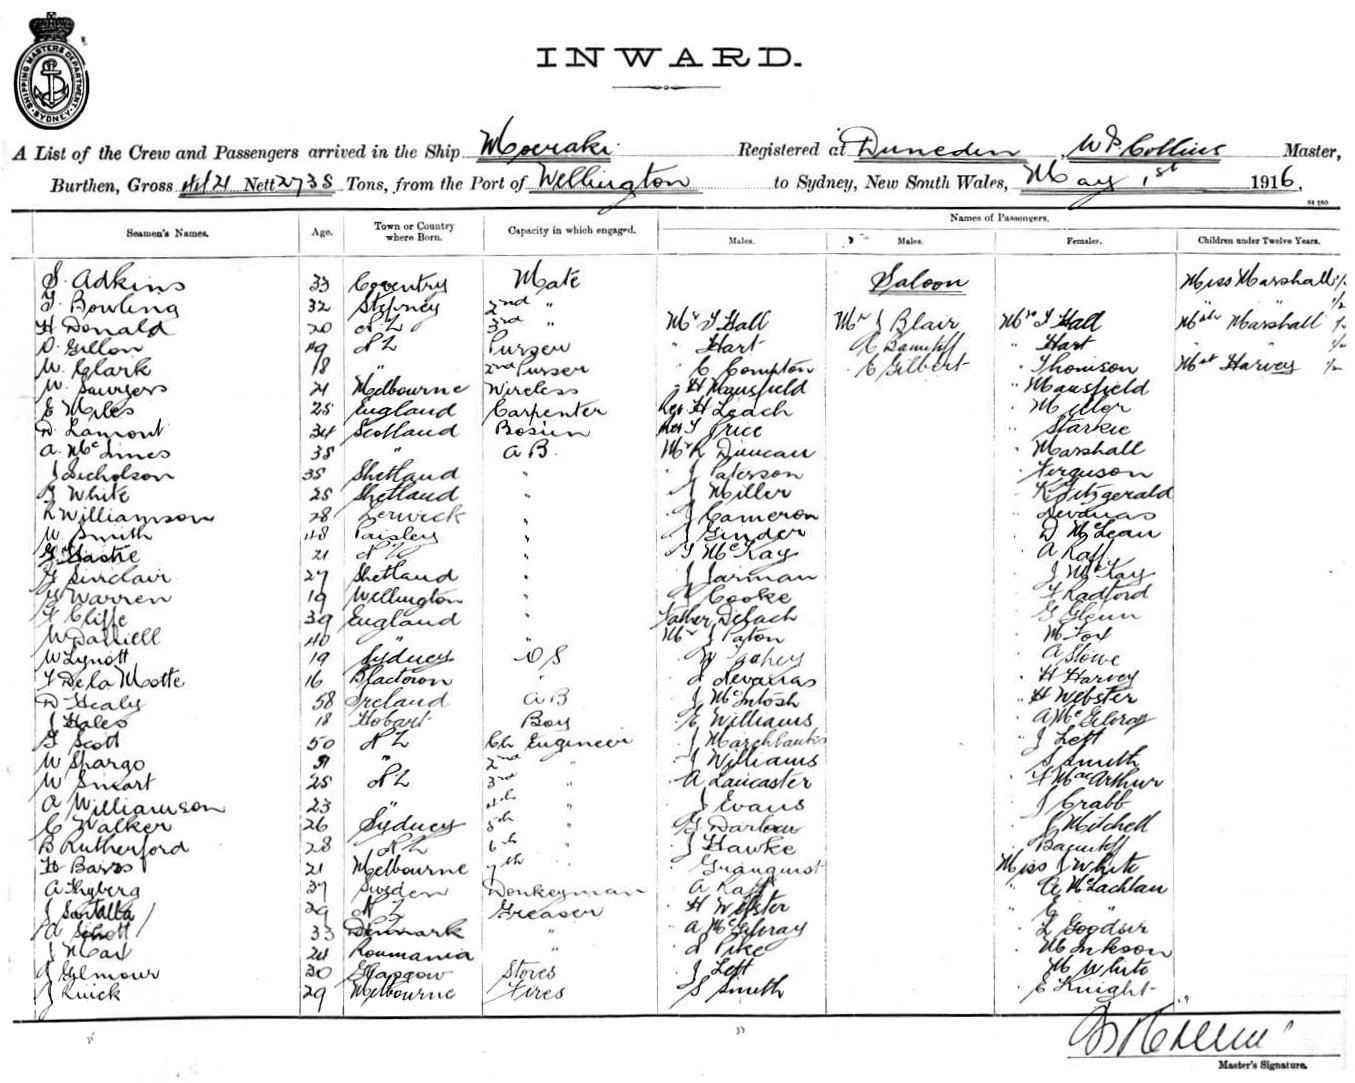 SHIPPING MASTERS DEPARTMENT SYDNEY
INWARD.
A List of the Crew and Passengers arrived in the Ship Moeraki Registered at Dunedin W P Collins Master,
Burthen, Gross 4421 Nett 2735 Tons, from the Port of Wellington to Sydney, New South Wales, May 1st 1916.
Names of Passengers.
Seamen's Names. Age. Town or Country where Born. Capacity in which engaged. Males. Males. Females. Children under Twelve Years.
S. Adkins 33 Coventry Mate Saloon Miss Marshall 1/2
Bowling 32 Stepney 2nd " 1/2
H Donald 20 N Z 3rd " Mr T Hall Mr J Blair Mrs T Hall Mstr Marshall
D. Gillon 49 N Z Purser " Hart " Hart " "
W. Clark 18 " 2nd Purser C Compton C Gilbert Thomson Mst Harvey
W. 21 Melbourne Wireless H Mansfield " Mansfield
E Miles 25 England Carpenter Rev H Leach Miller
D. Lamont 34 Scotland Bosun Rev Grice Starkie
A. McInnes 38 " A B. Mr R Duncan Marshall
J Nicholson 35 Shetland " J Paterson Ferguson
White 25 Shetland " J Miller K Fitzgerald
R Williamson 28 Lerwick " J Cameron Devanas
W Smith 48 Paisley " J Ginder D McLean
G Hastie 21 N Z " McKay A Raff
Sinclair 27 Shetland " J Jarman J McKay
Warren 19 Wellington " Cooke Radford
Cliffe 39 England " Father Delach G Glenn
W Daniell 40 " " Mr J Paton M Fox
W Lynott 19 Sydney O S Fahey A Stowe
De la Motte 16 Devanas H Harvey
D Healy 58 Ireland A B J McIntosh H Webster
J Hales 18 Hobart Boy E Williams A McGilvray
G Scott 50 N Z Ch Engineer J Marchbanks J Left
W Spargo " 2nd " J Williams S Smith
W Smart 25 N Z 3rd " A Lancaster MacArthur
A Williamson 23 " 4th " J Evans J Crabb
C Walker 26 Sydney 5th " G J Mitchell
B Rutherford 28 N Z 6th " J Hawke
H 21 Melbourne 7th " Granquist Miss J White
A Thyberg 37 Sweden Donkeyman A Raff " A McLachlan
J 29 N Z Greaser H Webster " E "
A Schott 33 Denmark " A McGilvray L Goodsir
J 24 Roumania " Pike M Inkson
J Gilmour 30 Glasgow Stores J Left M White
J Quick 29 Melbourne Fires S Smith E Knight
Master's Signature.